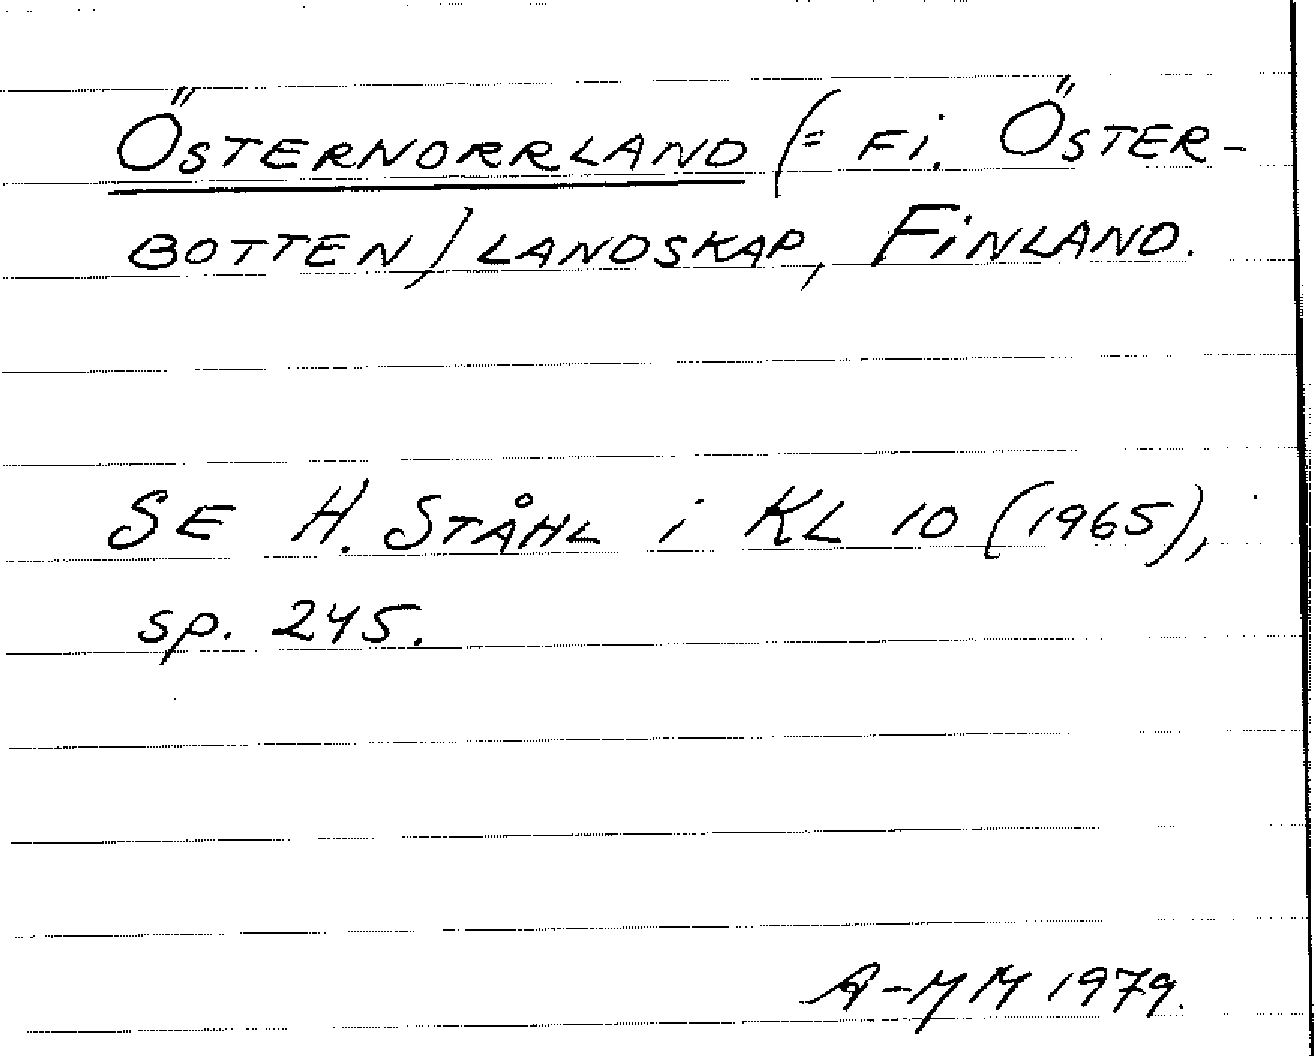 ÖSTERNORRLAND (= Fi. ÖSTER-
BOTTEN) LANDSKAP, FINLAND.
SE H. STÅHL i KL 10 (1965),
sp. 245.
A-MM 1979.